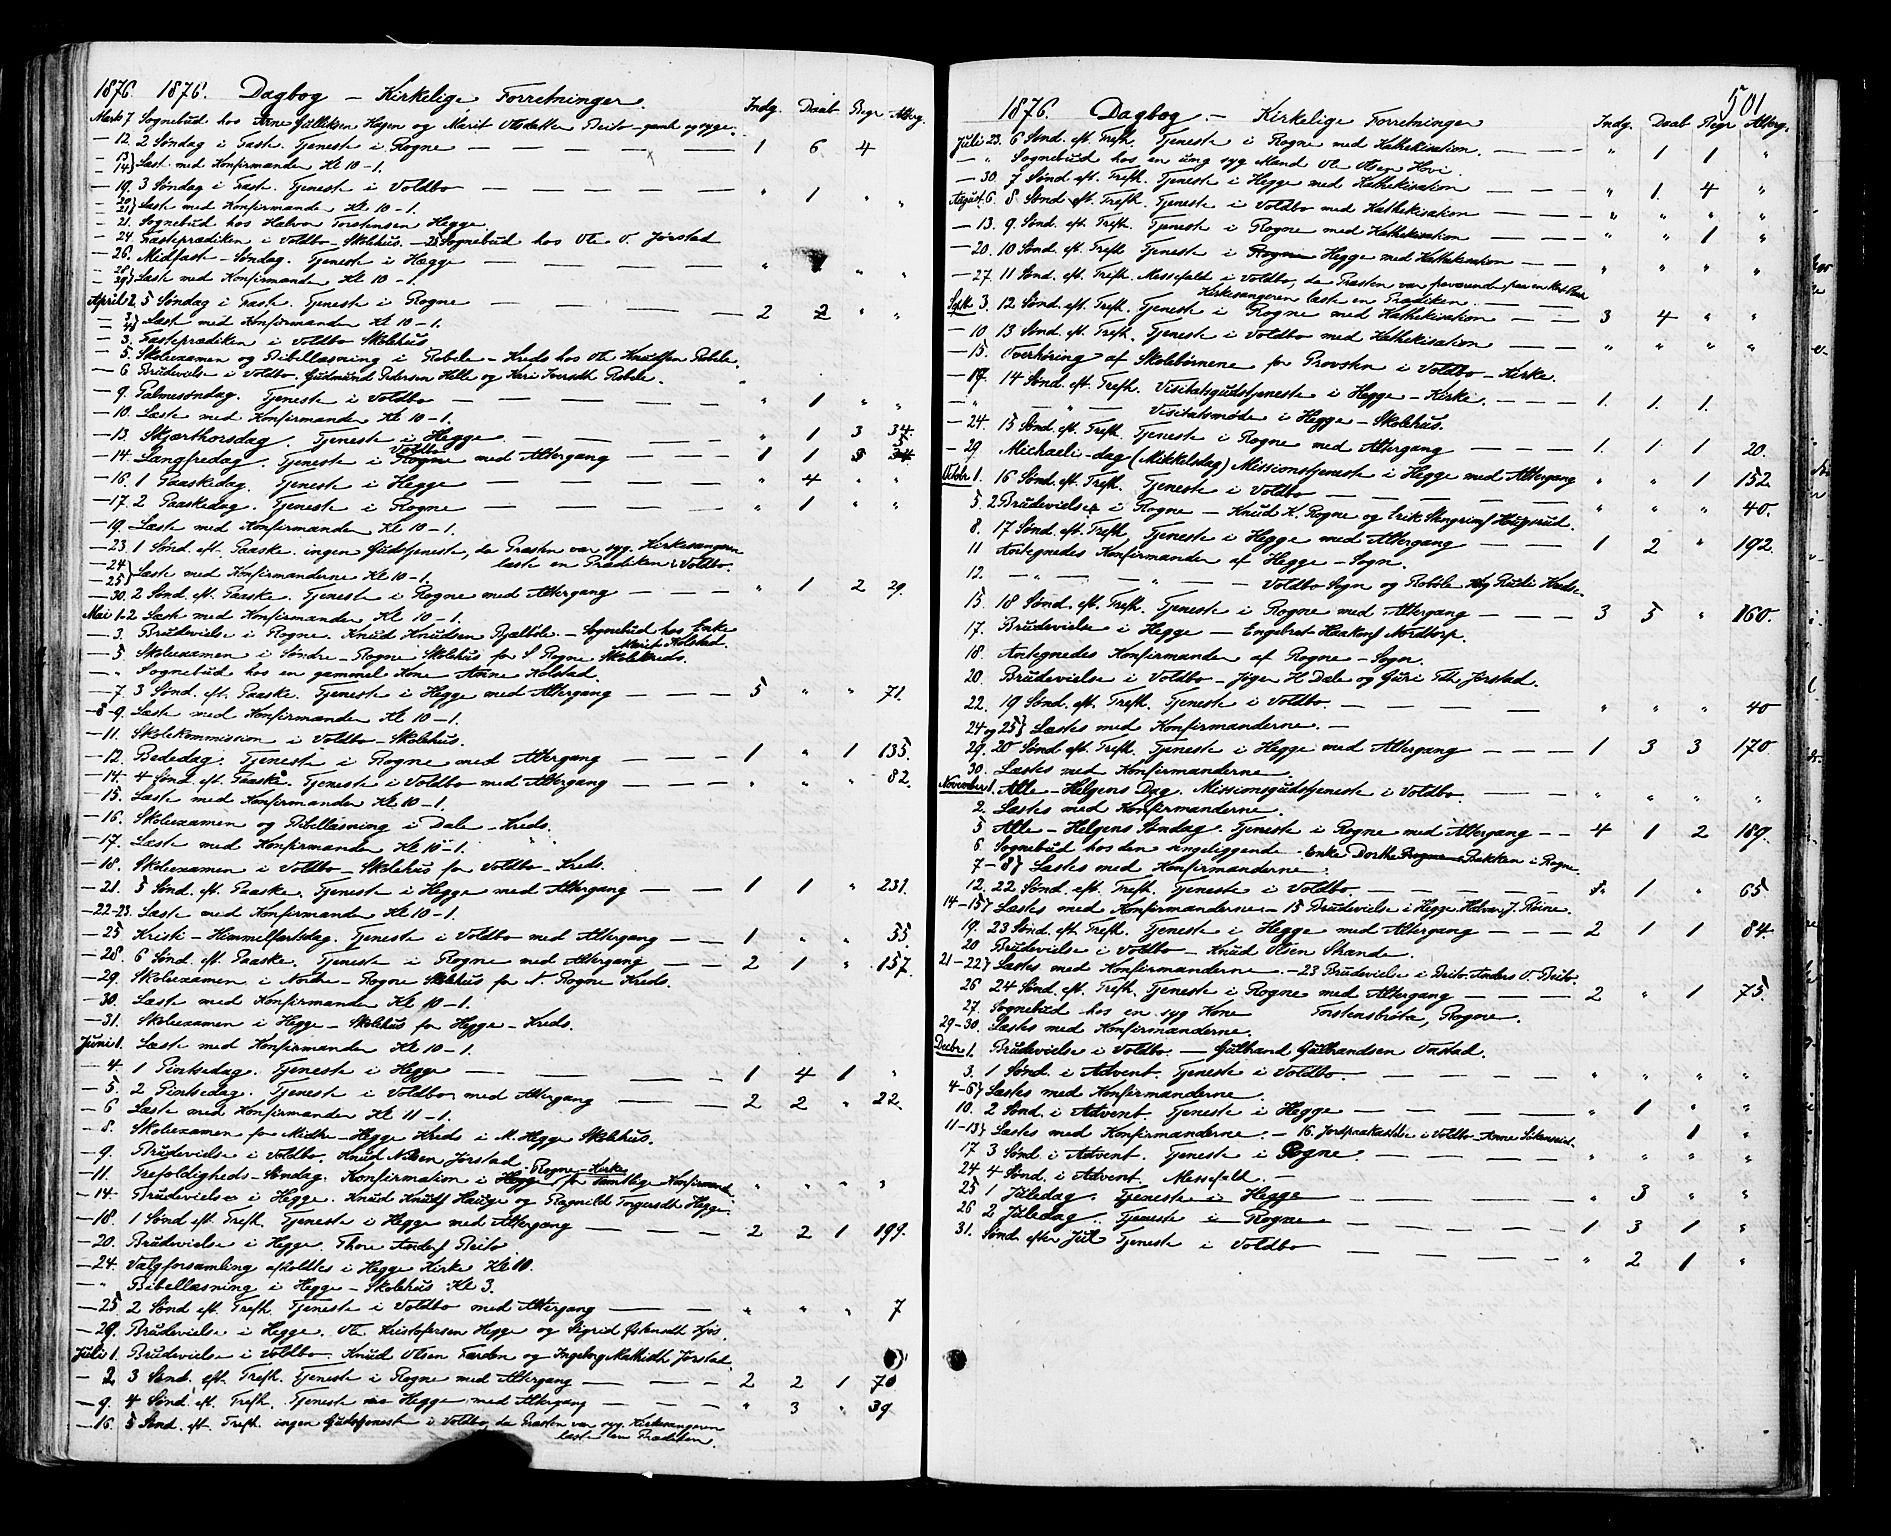 1876. 1876. Dagbog — Kirkelige Forretninger. Indg. Daab Begr. Alterg.
Marts 7 Sognebud hos Arne Gulliksen Hagen og Marit Olsdatter Beito - gamle og syge.
— 12. 2 Søndag i Fast. Tjeneste i Rogne — — — — 1 6 4
— 13 14} Læst med Konfirmander Kl 10-1.
— 19. 3 Søndag i Fast. Tjeneste i Voldbo — — — — " 1 " "
— 20 21} Læst med Konfirmander Kl. 10-1.
— 21. Sognebud hos Halvor Torstensen Hegge.
— 24. Fasteprædiken i Voldbo-Skolehus. — 25 Sognebud hos Ole O. Jørstad
— 26. Midfast-Søndag. Tjeneste i Hegge — — — — " " "
— 28 29} Læst med Konfirmander Kl 10-1.
April 2. 5 Søndag i Fast. Tjeneste i Rogne — — — — 2 2 " "
— 3 4} Læst med Konfirmander Kl 10-1.
— 3. Fasteprædiken i Voldbo Skolehus
— 5. Skoleexamen og Bibellæsning i Robøle-Kreds hos Ole Knudsen Robøle.
— 6 Brudevielse i Voldbo. Gudmund Pedersen Helle og Kari Iversdt Robøle.
— 9. Palmesøndag. Tjeneste i Voldbo — — — — " 1 " "
— 10. Læst med Konfirmander Kl 10-1.
— 13. Skjærthorsdag. Tjeneste i Hegge — — — " 1 3 34.
— 14. Langfredag. Tjeneste i Voldbo med Altergang — — — 1 1
— 16. 1 Paaskedag. Tjeneste i Hegge — — — " 4 " "
— 17. 2 Paaskedag. Tjeneste i Rogne — — — " 1 " "
— 19. Læst med Konfirmander Kl 10-1.
— 23. 1 Sønd. eft. Paaske. ingen Gudstjeneste, da Præsten var syg. Kirkesangeren
læste en Prædiken i Voldbo.
— 24 — 25} Læst med Konfirmanderne Kl 10-1.
— 30. 2 Sønd. eft. Paaske. Tjeneste i Rogne med Altergang — — — " 1 2 29.
Mai 1-2 Læst med Konfirmander Kl 10-1.
— 3. Brudevielse i Rogne. Knud Knudsen Bjelbøle. — Sognebud hos Enke
Marit Kolstad.
— 5. Skoleexamen i Søndre-Rogne Skolehus for S. Rogne Skolekreds.
— " Sognebud hos en gammel Kone Anne Kolstad.
— 7. 3 Sønd. eft. Paaske. Tjeneste i Hegge med Altergang — — — 5 " " 71.
— 8-9. Læst med Konfirmander Kl 10-1.
— 11. Skolekommission i Voldbo-Skolehus.
— 12. Bededag. Tjeneste i Rogne med Altergang — — — 1 " 1 135.
— 14. 4 Sønd. eft. Paaske. Tjeneste i Voldbo med Altergang — — — " " " 82.
— 15. Læst med Konfirmander Kl 10-1.
— 16. Skoleexamen og Bibellæsning i Dale-Kreds.
— 17. Læst med Konfirmander Kl 10-1.
— 18. Skoleexamen i Voldbo-Skolehus for Voldbo-Kreds.
— 21. 5 Sønd. eft. Paaske. Tjeneste i Hegge med Altergang — — 1 1 " 231.
— 22-23. Læst med Konfirmander Kl 10-1.
— 25 Kristi-Himmelfartsdag. Tjeneste i Voldbo med Altergang — — 1 " " 55.
— 28. 6 Sønd. eft. Paaske. Tjeneste i Rogne med Altergang — — 2 1 " 157.
— 29. Skoleexamen i Nordre-Rogne Skolehus for N. Rogne Kreds.
— 30. Læst med Konfirmander Kl 10-1.
— 31. Skoleexamen i Hegge-Skolehus for Hegge-Kreds.
Juni 1. Læst med Konfirmander Kl 10-1.
— 4. 1 Pintsedag. Tjeneste i Hegge — — — 1 4 1 "
— 5. 2 Pintsedag. Tjeneste i Voldbo med Altergang — — — 2 2 " 22.
— 6 Læst med Konfirmander Kl 11-1.
— 8. Skoleexamen for Midtre-Hegge Kreds i M. Hegge Skolehus.
— 9. Brudevielse i Voldbo. Knud Nilsen Jørstad.
Rogne-Kirke
— 11. Trefoldigheds-Søndag. Konfirmation i Hegge for samtlige Konfirmand. " " " "
— 14. Brudevielse i Hegge. Knud Knuds Hauge og Ragnild Torgersdt Hegge.
— 18. 1 Sønd eft. Trefh. Tjeneste i Hegge med Altergang — — — 2 2 1 199.
— 20. Brudevielse i Hegge. Thore Anders Beito
— 24. Valgforsamling afholdtes i Hegge Kirke Kl 10.
— " Bibellæsning i Hegge-Skolehus Kl 3.
— 25 2 Sønd eft. Trefh. Tjeneste i Voldbo med Altergang — — " " " 7
— 29. Brudevielse i Hegge. Ole Kristofersen Hegge og Sigrid
Juli 1. Brudevielse i Voldbo. Knud Olsen Færden og Ingeborg Mathisdt Jørstad.
— 2 3 Sønd. eft. Trefh. Tjeneste i Rogne med Altergang — — — 2 2 1 70
— 9. 4 Sønd. eft. Trefh. Tjeneste i Hegge med Altergang — — — " 3 " 39
— 16. 5 Sønd. eft. Trefh. ingen Gudstjeneste i Voldbo, da Præsten var syg. Kirkesangeren
læste en Prædiken.
501
1876. Dagbog — Kirkelige Forretninger Indg. Daab Begr. Alterg.
Juli 23. 6 Sønd. eft. Trefh. Tjeneste i Rogne med Kathekisation. — — " 1 1 "
— " Sognebud hos en ung syg Mand Ole Olsen Hovi.
— 30. 7 Sønd. eft. Trefh. Tjeneste i Hegge med Kathekisation — — " 1 4 "
August 6. 8 Sønd eft. Trefh. Tjeneste i Voldbo med Kathekisation — — " " " "
— 13. 9. Sønd. eft. Trefh. Tjeneste i Rogne med Kathekisation — — " " 1 "
— 20. 10 Sønd. eft. Trefh Tjeneste i Hegge med Kathekisation — — " " " "
— 27. 11 Sønd. eft. Trefh. Messefald i Voldbo, da Præsten var fraværende
Kirkesangeren læste en Prædiken.
Septb. 3. 12. Sønd. eft. Trefh. Tjeneste i Rogne med Kathekisation — — 3 4 " "
— 10. 13 Sønd. eft. Trefh. Tjeneste i Voldbo med Kathekisation — — " " " "
— 15. Overhøring af Skolebørnene for Provsten i Voldbo-Kirke.
— 17. 14 Sønd. eft. Trefh. Visitatsgudstjeneste i Hegge-Kirke. — — 1. 1. 1.
— " — " — Visitatsmøde i Hegge-Skolehus.
— 24. 15 Sønd. eft. Trefh. Tjeneste i Rogne med Altergang — — 1. 1. 1 20.
— 29 Michaeli-dag (Mikkelsdag) Missionstjeneste i Hegge med Altergang " " 1 152
Octobr 1. 16 Sønd. eft. Trefh. Tjeneste i Voldbo — — — " " " 40.
5. 2 Brudevielser i Rogne — Knud K. Rogne og Erik Stengrims Haugsrud.
8. 17 Sønd. eft. Trefh. Tjeneste i Hegge med Altergang — — 1 2 " 192.
11 Antegnedes Konfirmander af Hegge-Sogn.
12. — " — " — Voldbo Sogn og Robøle og Kreds.
15. 18 Sønd. eft. Trefh. Tjeneste i Rogne med Altergang — — 3 5 " 160.
17. Brudevielse i Hegge — Engebret Haakons Nordtorp.
18. Antegnedes Konfirmander af Rogne-Sogn.
20. Brudevielse i Voldbo — H. Dale og Guri Jørstad.
22. 19 Sønd. eft. Trefh. Tjeneste i Voldbo. — — — " " " 40
24 og 25} Læstes med Konfirmanderne. —
29. 20 Sønd eft. Trefh. Tjeneste i Hegge med Altergang — — — 1 3 3 170
30. Læstes med Konfirmanderne.
November 1. Alle-Helgens Dag. Missionsgudstjeneste i Voldbo. — — — " " " "
2. Læstes med Konfirmanderne.
5 Alle-Helgens Søndag. Tjeneste i Rogne med Altergang — — 4 1 2 189.
6. Sognebud hos den sengeliggende Enke Dorthe Bakken i Rogne.
7-8} Læstes med Konfirmanderne.
12. 22 Sønd. eft. Trefh. Tjeneste i Voldbo. — — — — 1 " 65
14-15} Læstes med Konfirmanderne — 15 Brudevielse i Hegge Halvor J. Røine.
19. 23 Sønd. eft. Trefh. Tjeneste i Hegge med Altergang — — — 2 1 1 84.
20 Brudevielse i Voldbo — Knud Olsen Strande.
21-22} Læstes med Konfirmanderne. — 23 Brudevielse i Beito. Anders O. Beito.
26 24 Sønd. eft. Trefh. Tjeneste i Rogne med Altergang — — — 2 " 1 75.
27. Sognebud hos en syg Kone Torstensbråta, Rogne.
29-30. Læstes med Konfirmanderne.
Decbr 1. Brudevielse i Voldbo — Gulbrand Gulbrandsen Onstad.
3. 1 Sønd. i Advent. Tjeneste i Voldbo. — — — " " " "
4-6} Læstes med Konfirmanderne.
10. 2 Sønd. i Advent. Tjeneste i Hegge — — — " 1 " "
11-13} Læstes med Konfirmanderne. — 16. Jordpaakastelse i Voldbo Anne 1 "
17 3 Sønd. i Advent. Tjeneste i Rogne. — — — " " " "
24. 4 Sønd. i Advent. Messefald. —
25 1 Juledag. Tjeneste i Hegge — — — " 3 " "
26 2 Juledag. Tjeneste i Rogne — — — 1 3 1 "
31. Sønd. efter Jul Tjeneste i Voldbo — — — " 2 1 "